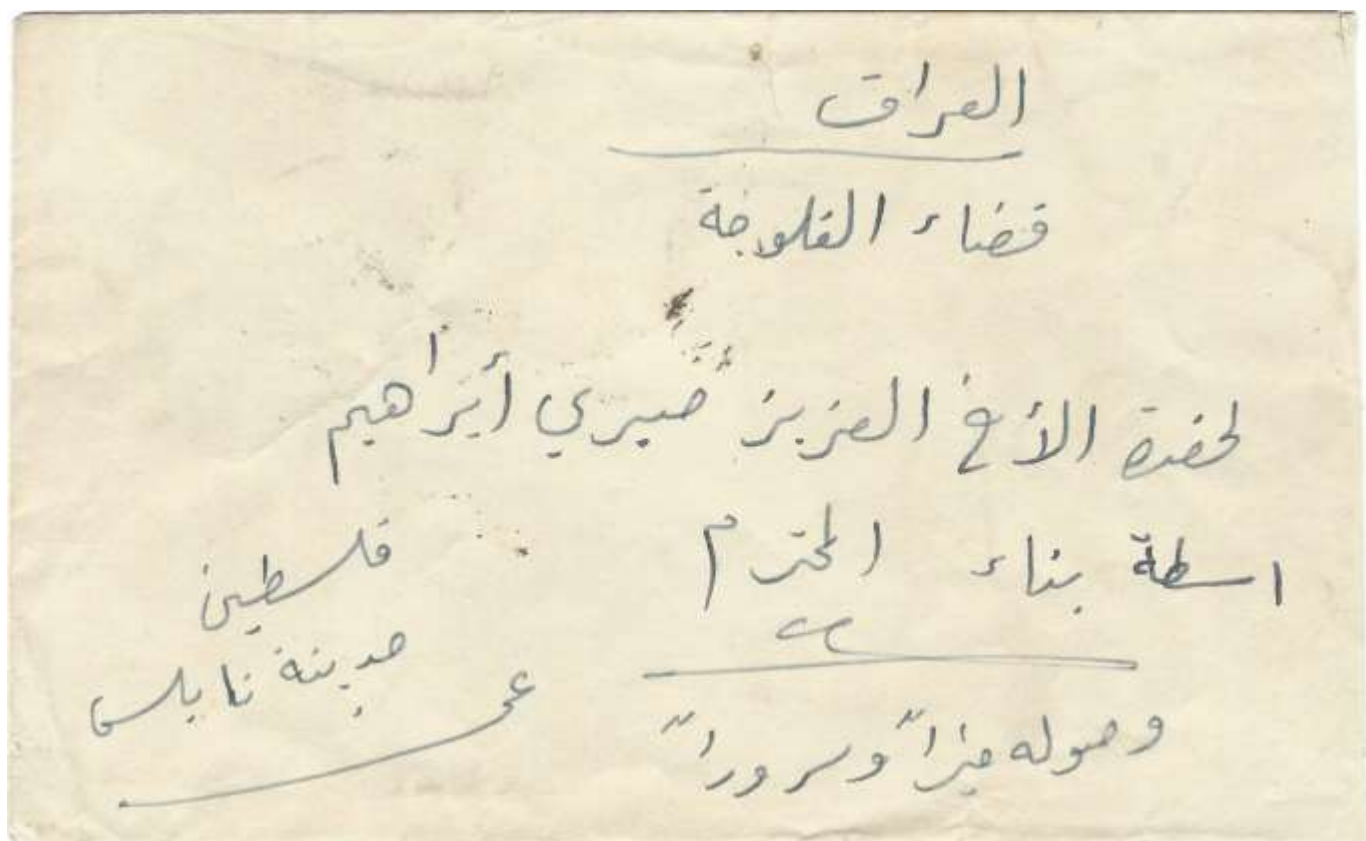 العراق
قضاء الفلوجة
لحضرة الأخ العزيز صبري أبراهيم
اسطة بناء المحترم
وصوله خيراً وسروراً
فلسطين
مدينة نابلس